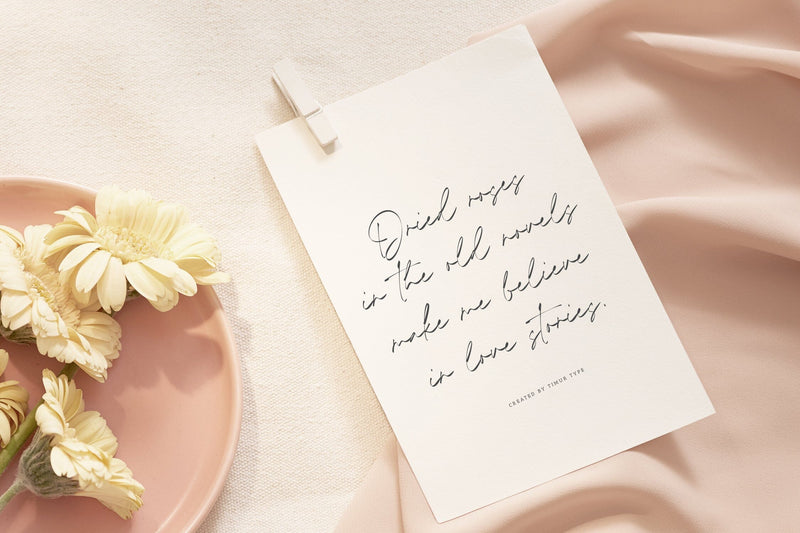 Dried roses
in the old novels
make me believe
in love stories.
CREATED BY TIMUR TYPE